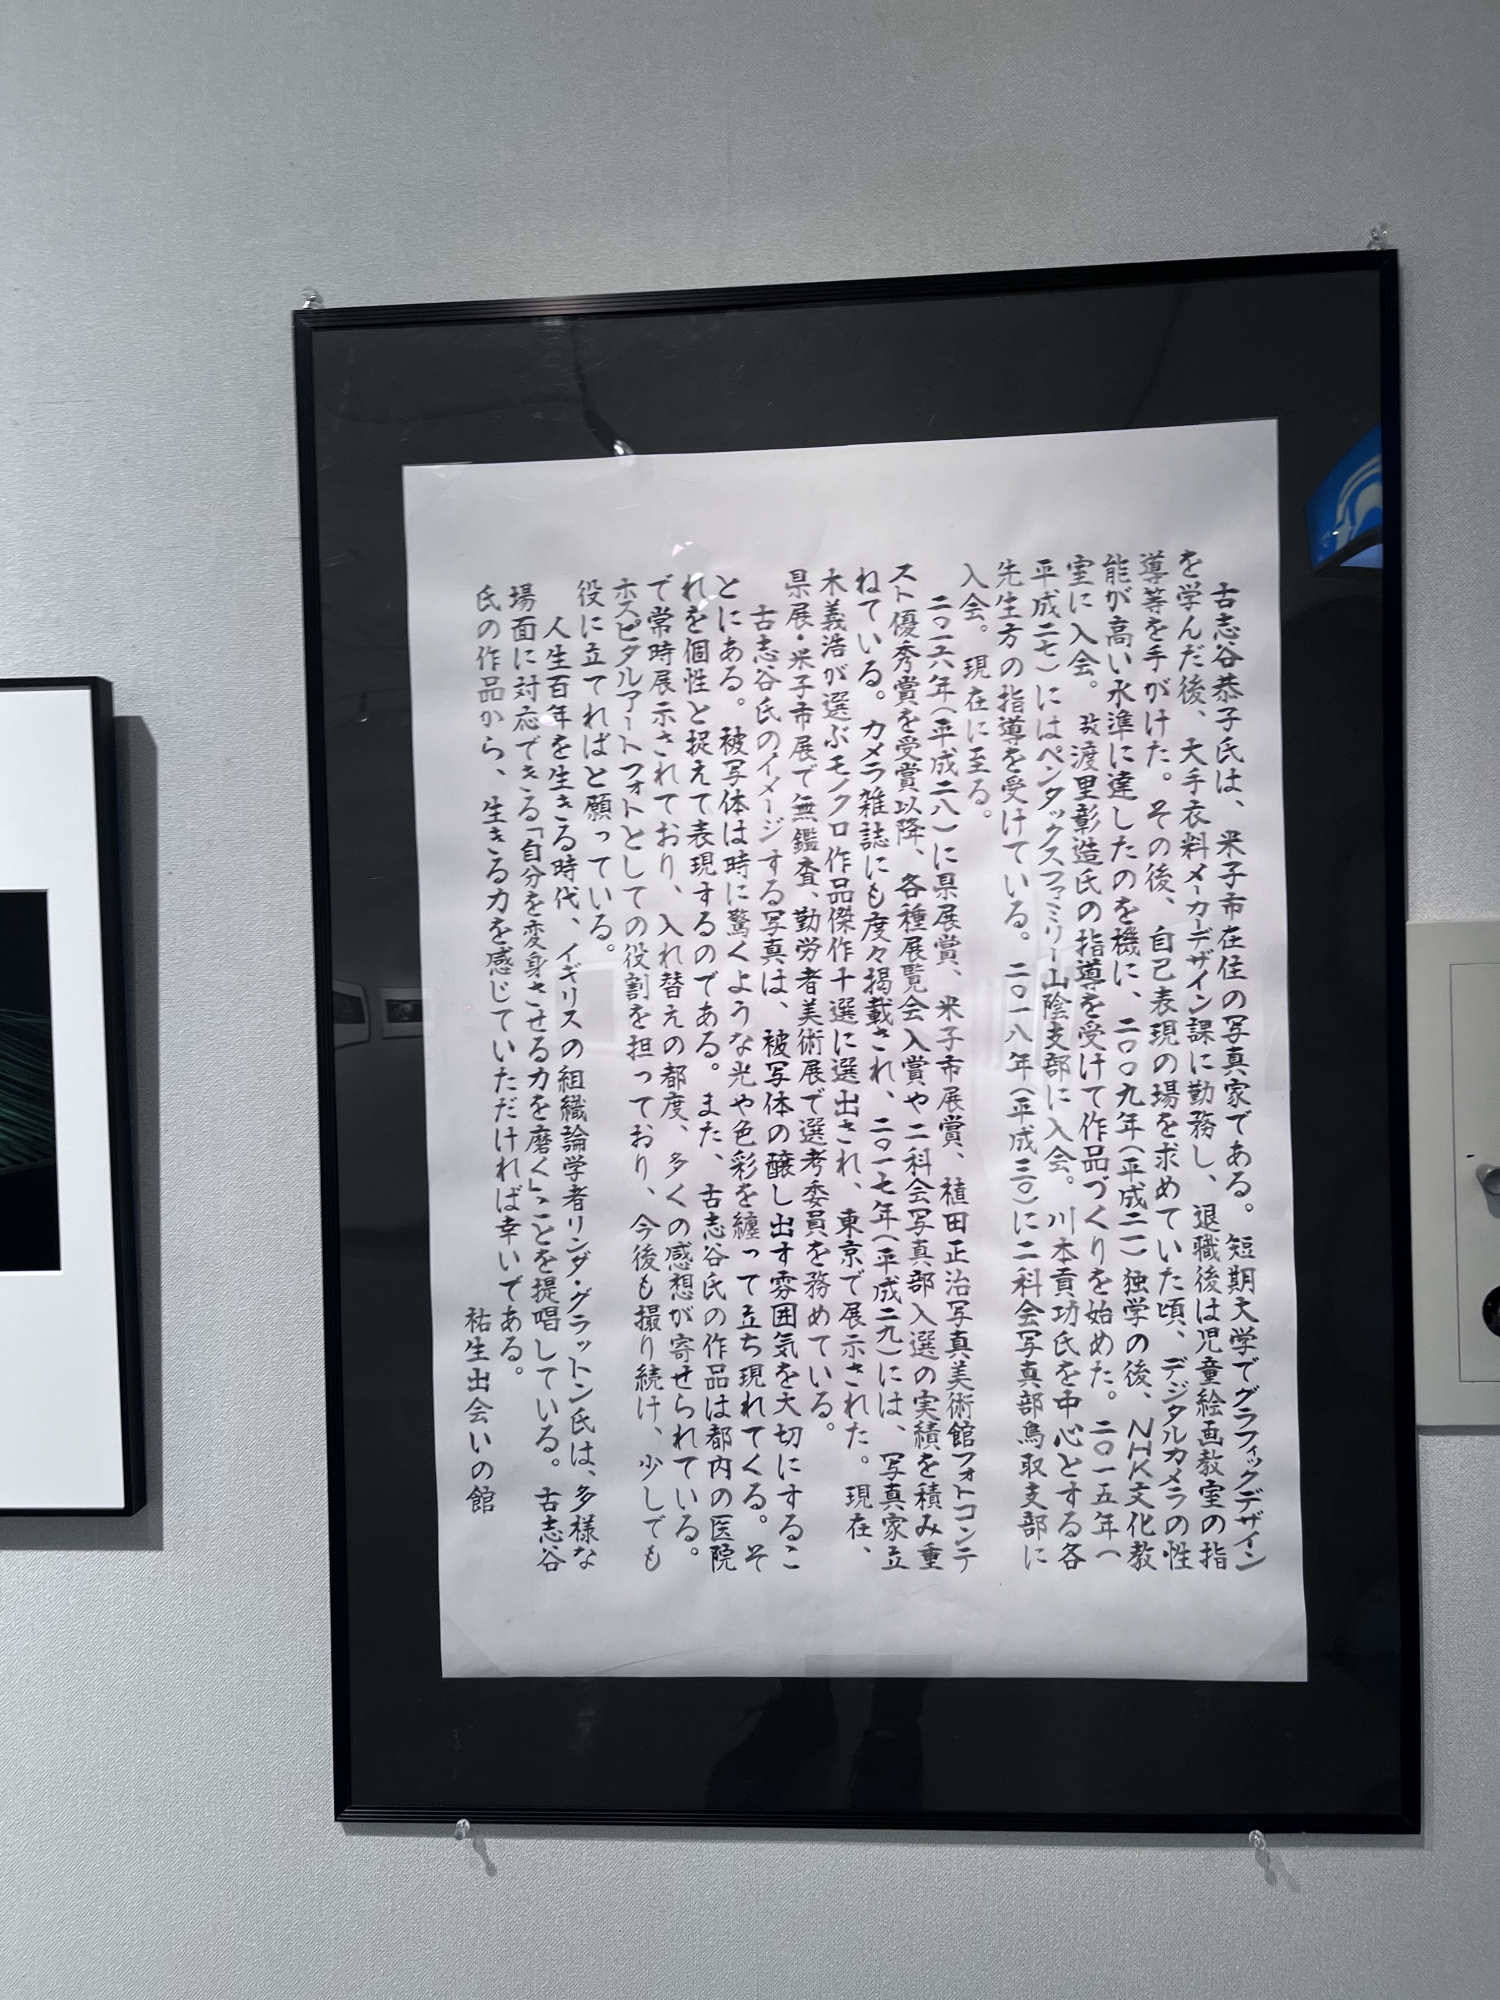 古志谷恭子氏は、米子市在住の写真家である。短期大学でグラフィックデザイン
を学んだ後、大手衣料メーカーデザイン課に勤務し、退職後は児童絵画教室の指
導等を手がけた。その後、自己表現の場を求めていた頃、デジタルカメラの性
能が高い水準に達したのを機に、二〇〇九年(平成二一)独学の後、NHK文化教
室に入会。故渡里彰造氏の指導を受けて作品づくりを始めた。二〇一五年へ
平成二七)にはペンタックスファミリー山陰支部に入会。川本貢功氏を中心とする各
先生方の指導を受けている。二〇一八年(平成三〇)に二科会写真部鳥取支部に
入会。現在に至る。
二〇一六年(平成二八)に県展賞、米子市展賞、植田正治写真美術館フォトコンテ
スト優秀賞を受賞以降、各種展覧会入賞や二科会写真部入選の実績を積み重
ねている。カメラ雑誌にも度々掲載され、二〇一七年(平成二九)には、写真家立
木義浩が選ぶモノクロ作品傑作十選に選出され、東京で展示された。現在、
県展・米子市展で無鑑査、勤労者美術展で選考委員を務めている。
古志谷氏のイメージする写真は、被写体の醸し出す雰囲気を大切にするこ
とにある。被写体は時に驚くような光や色彩を纏って立ち現れてくる。そ
れを個性と捉えて表現するのである。また、古志谷氏の作品は都内の医院
で常時展示されており、入れ替えの都度、多くの感想が寄せられている。
ホスピタルアートフォトとしての役割を担っており、今後も撮り続け、少しでも
役に立てればと願っている。
人生百年を生きる時代、イギリスの組織論学者リンダ・グラットン氏は、多様な
場面に対応できる「自分を変身させる力を磨く」ことを提唱している。古志谷
氏の作品から、生きる力を感じていただければ幸いである。
祐生出会いの館